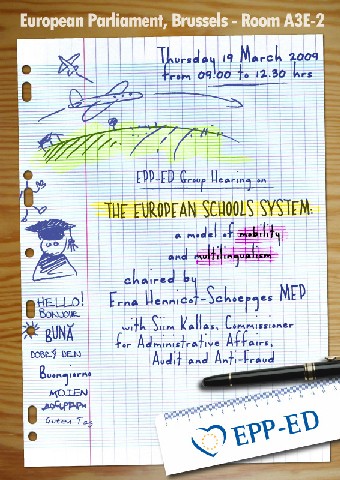 European Parliament, Brussels - Room A3E-2
Thursday 19 March 2009
from 09:00 to 12.30 hrs
EPP-ED Group Hearing on
THE EUROPEAN SCHOOLS SYSTEM:
a model of mobility
and multilingualism
chaired by
Erna Hennicot-Schoepges MEP
with Siim Kallas, Commissioner
for Administrative Affairs,
Audit and Anti-Fraud
HELLO!
BONJOUR
BUNĂ
DOBRÝ DEN
Buongiorno
MOIEN
Guten Tag
EPP-ED